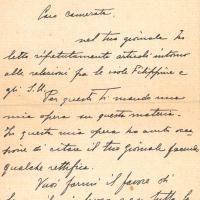 Caro camerata,
nel tuo giornale ho
letto ripetutamente articoli intorno
alle relazioni fra le isole Filippine e
gli S.U.
Per questo ti mando una
mia opera su questa materia.
In questa mia opera ho avuto occa
sione di citare il tuo giornale facendo
qualche rettifica.
Vuoi farmi il favore di